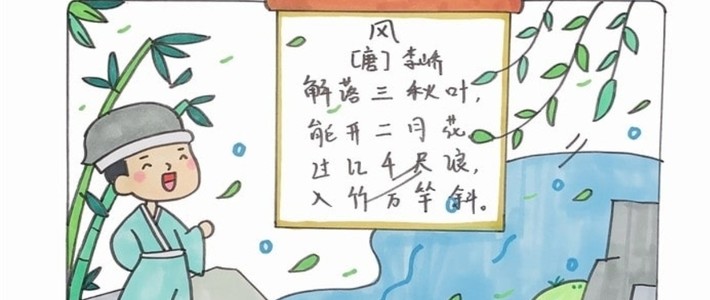 风
[唐] 李峤
解落三秋叶，
能开二月花。
过江千尺浪，
入竹万竿斜。